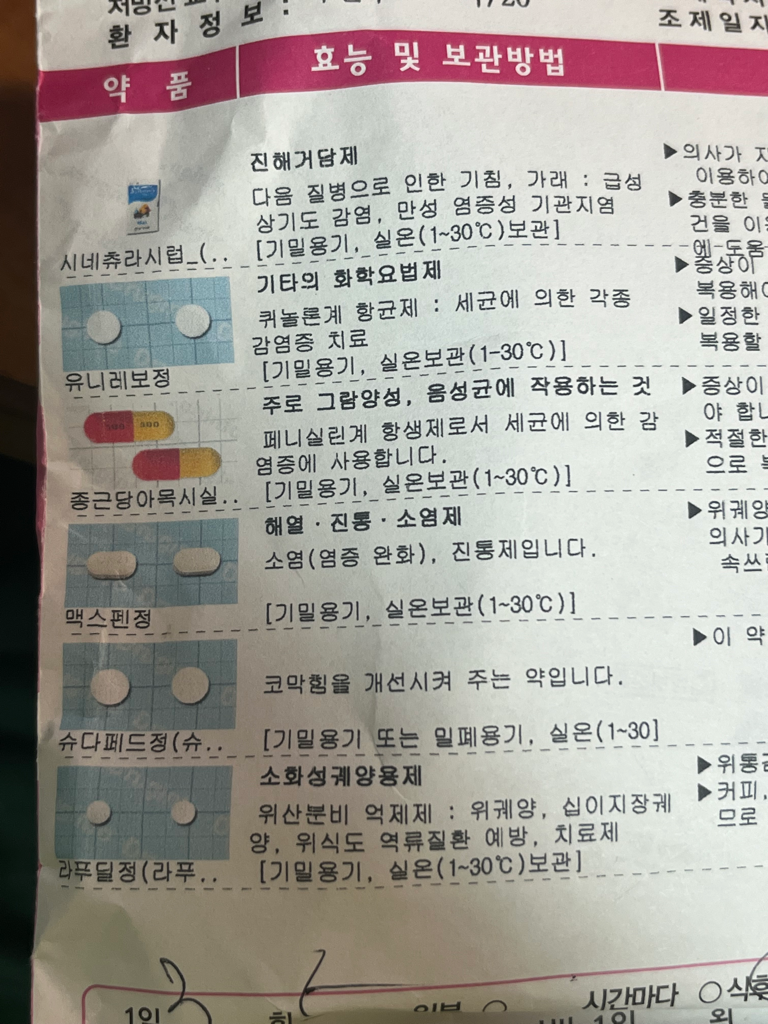 환 자 정 보 :
조 제 일 자
약 품
효능 및 보관방법
진해거담제
다음 질병으로 인한 기침, 가래 : 급성
상기도 감염, 만성 염증성 기관지염
[기밀용기, 실온(1~30℃)보관]
시네츄라시럽_(..
▶의사가
이용하여
▶충분한
건을
에 도움
기타의 화학요법제
퀴놀론계 항균제 : 세균에 의한 각종
감염증 치료
[기밀용기, 실온보관(1-30℃)]
유니레보정
▶증상이
복용해야
▶일정한
복용할
주로 그람양성, 음성균에 작용하는 것
페니실린계 항생제로서 세균에 의한 감
염증에 사용합니다.
[기밀용기, 실온보관(1~30℃)]
종근당아목시실..
▶증상이
야 합니
▶적절한
으로
해열·진통·소염제
소염(염증 완화), 진통제입니다.
[기밀용기, 실온보관(1~30℃)]
맥스펜정
▶위궤양
의사가
속쓰
코막힘을 개선시켜 주는 약입니다.
[기밀용기 또는 밀폐용기, 실온(1~30]
슈다페드정(슈..
▶이 약
소화성궤양용제
위산분비 억제제 : 위궤양, 십이지장궤
양, 위식도 역류질환 예방, 치료제
[기밀용기, 실온(1~30℃)보관]
라푸딜정(라푸..
▶위통
▶커피,
므로
1일 3 회
시간마다 ○식후